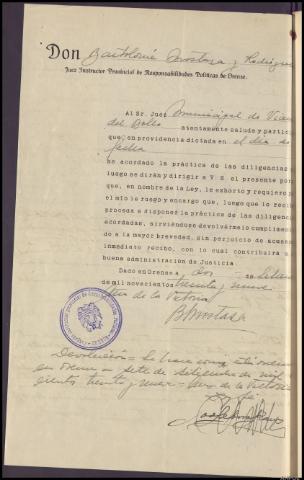 Don Bartolomé Mostaza y Rodrígu
Juez Instructor Provincial de Responsabilidades Políticas de Orense.
Al Sr. Juez Municipal de Viana
del Bollo
atentamente saluda y partici
que, en providencia dictada en el día de
fecha
he acordado la práctica de las diligencias
luego se dirán y dirigir a V. S. el presente por
que, en nombre de la Ley, le exhorto y requiero p
el mío le ruego y encargo que, luego que lo recib
proceda a disponer la práctica de las diligenc
acordadas, sirviéndose devolvérmelo cumpliment
do a la mayor brevedad, sin perjuicio de acusar
inmediato recibo, con lo cual contribuirá a
buena administración de Justicia.
Dado en Orense a dos de Setbre
de mil novecientos treinta y nueve
Año de la Victoria
B Mostaza
Devolución = Se hace
en Viana a siete de Setiembre de mil
cientos treinta y nueve = Año de la Victoria